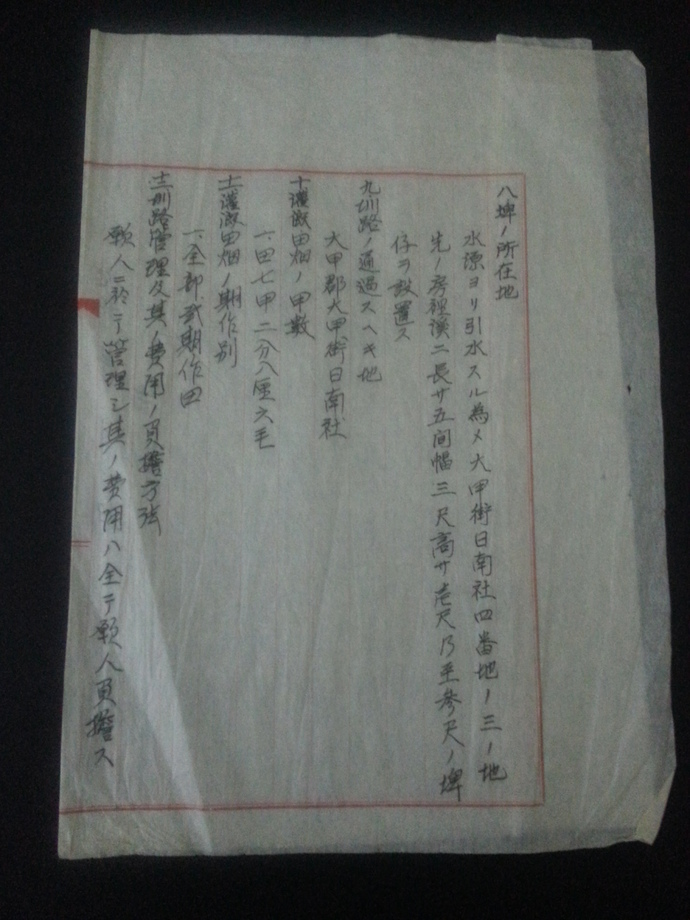 八埤ノ所在地
水源ヨリ引水スル為メ大甲街日南社四番地ノ三ノ地
先ノ房裡溪ニ長サ五间幅三尺高サ壱尺乃至参尺ノ埤
仔ヲ設置ス
九圳路ノ通過スヘキ地
大甲郡大甲街日南社
十灌漑田畑ノ甲数
一、田七甲二分八厘六毛
十一灌漑田畑ノ期作別
一、全部弐期作田
十二圳路管理及其ノ費用ノ負擔方法
願人ニ於テ管理シ其ノ費用ハ全テ願人負擔ス